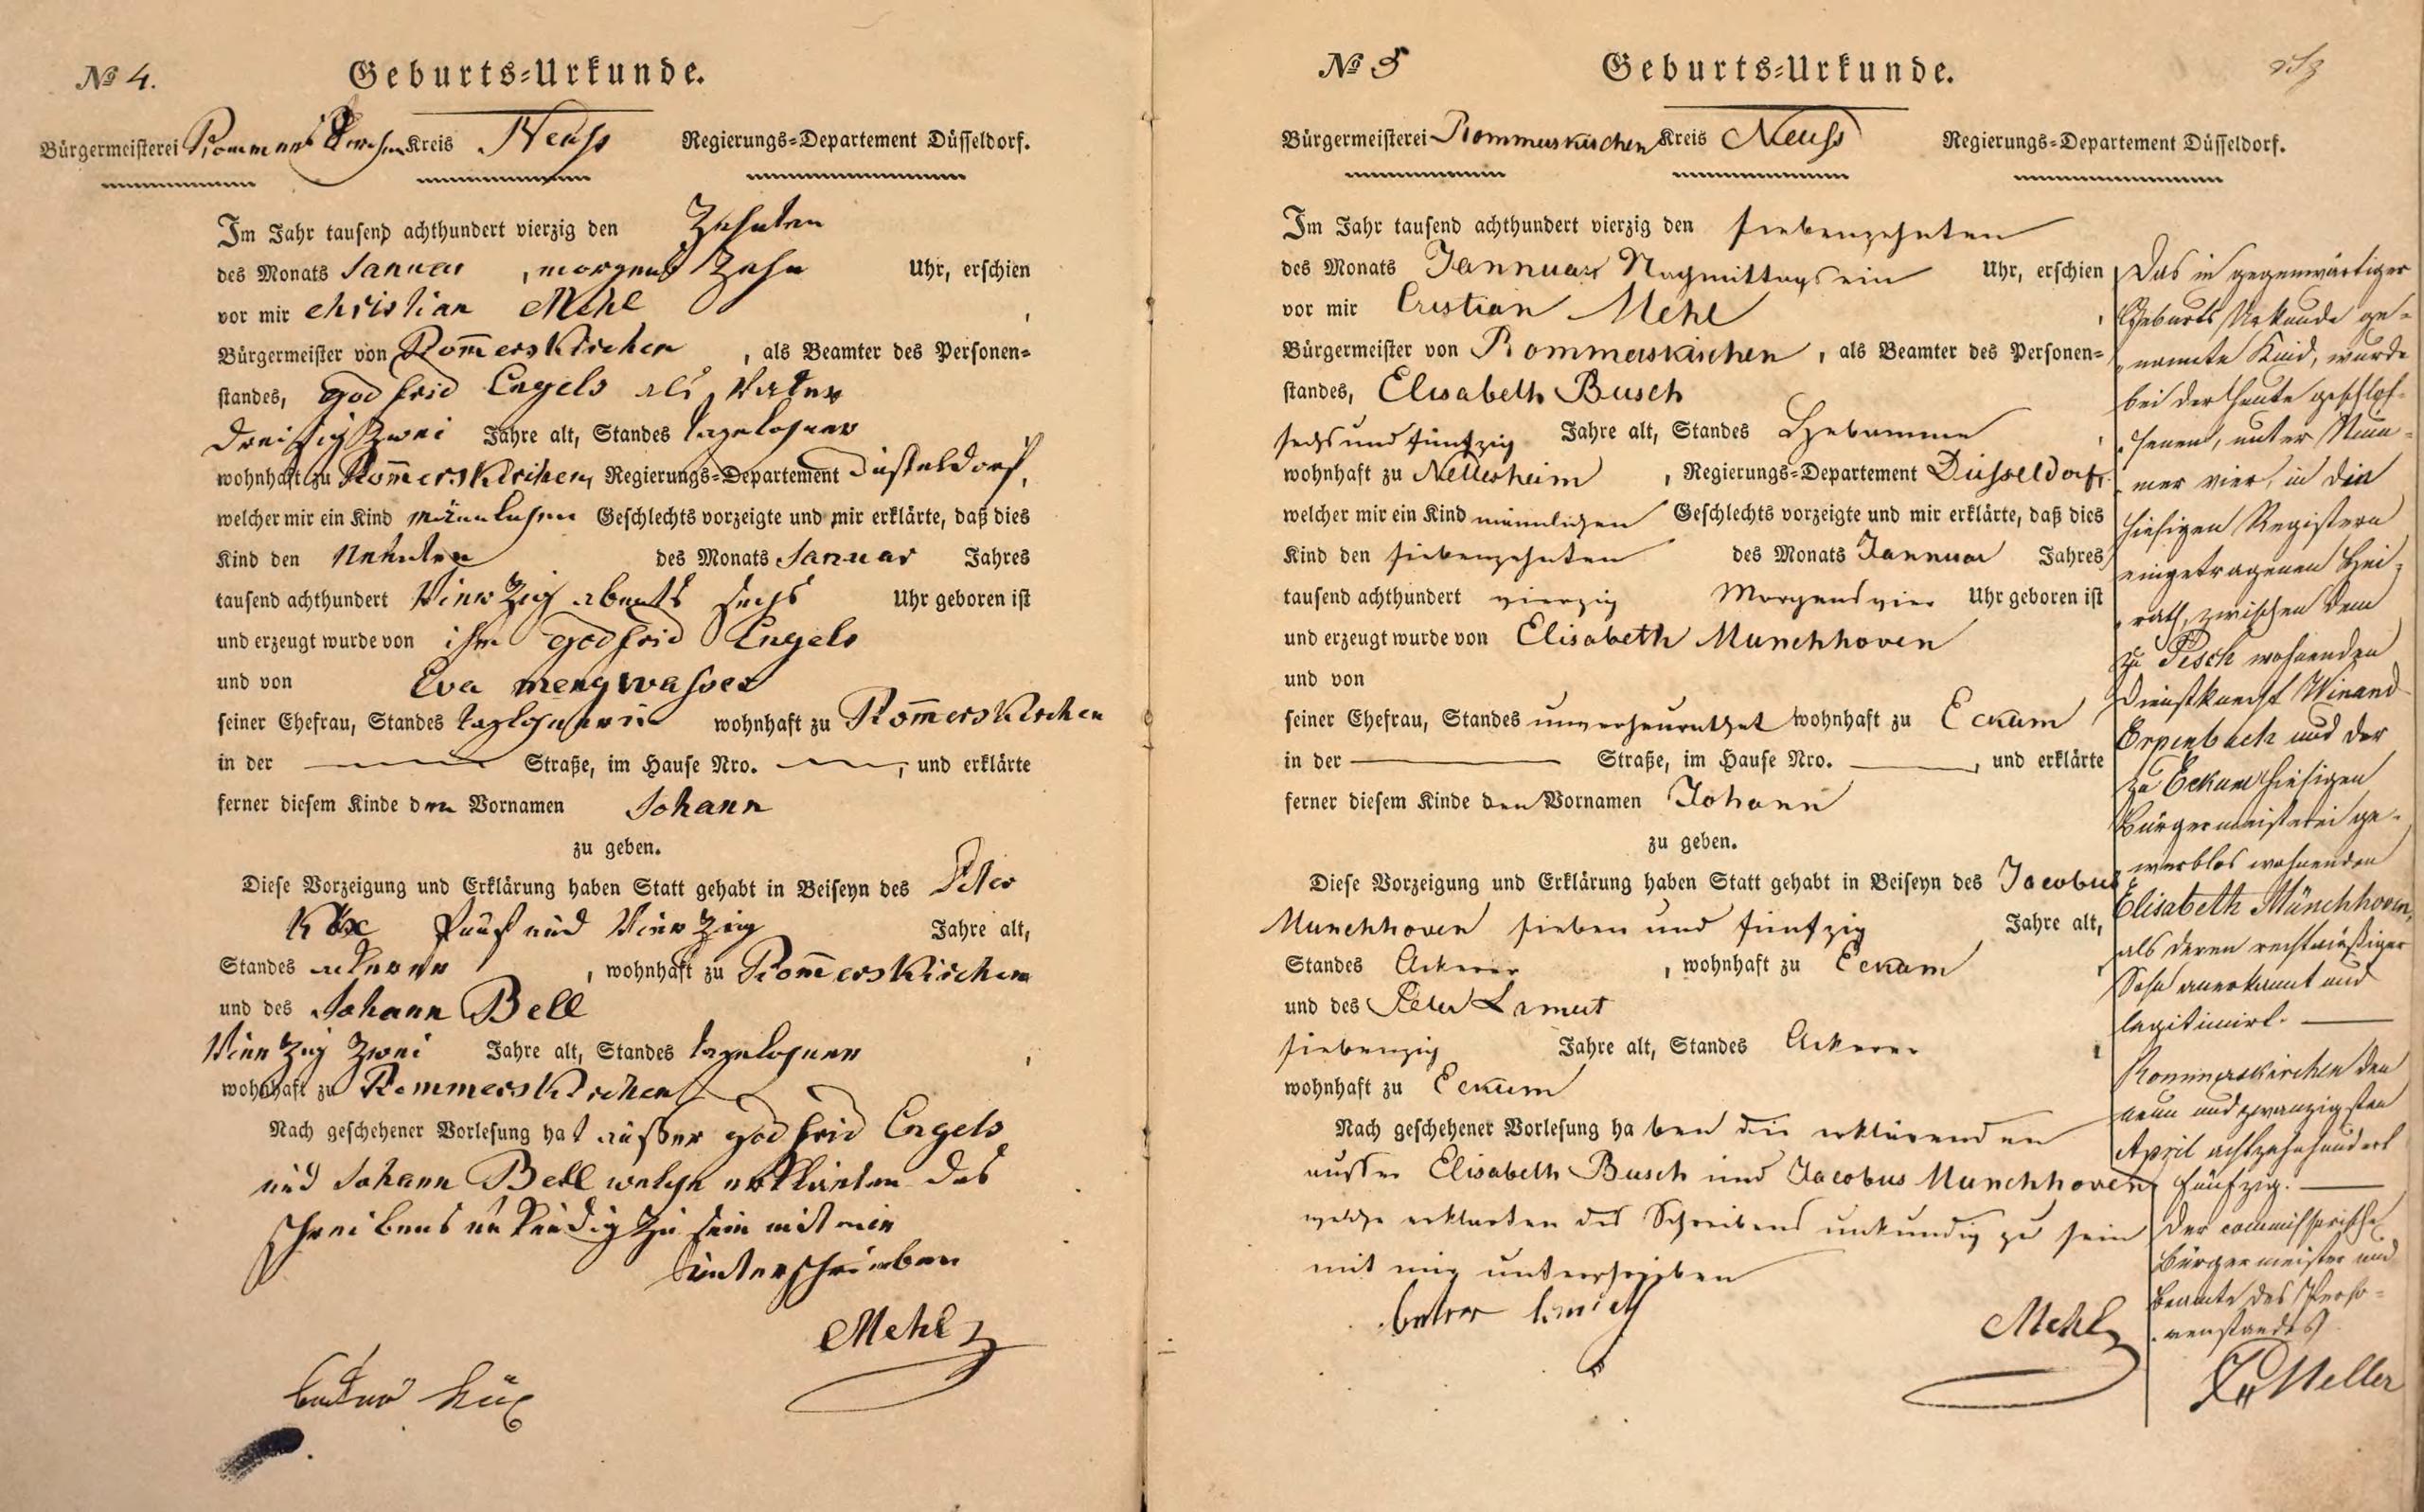 № 4.
Geburts-Urkunde.
Bürgermeisterei Rommerskirchen Kreis Neuss Regierungs-Departement Düsseldorf.
Im Jahr tausend achthundert vierzig den Zehnten
des Monats Januar, morgens Zehn Uhr, erschien
vor mir Christian Mehl,
Bürgermeister von Rom̄erskirchen, als Beamter des Personen-
standes, Godfrid Engels als Vater
dreißig Zwei Jahre alt, Standes tagelohner
wohnhaft zu Rom̄erskirchen, Regierungs-Departement Düsseldorf,
welcher mir ein Kind mänlichen Geschlechts vorzeigte und mir erklärte, daß dies
Kind den Neunten des Monats Januar Jahres
tausend achthundert Vierzig abents sechs Uhr geboren ist
und erzeugt wurde von ihm Godfrid Engels
und von Eva mengwasser
seiner Ehefrau, Standes taglohnerin wohnhaft zu Rom̄erskirchen
in der — Straße, im Hause Nro. —, und erklärte
ferner diesem Kinde den Vornamen Johann
zu geben.
Diese Vorzeigung und Erklärung haben Statt gehabt in Beiseyn des Peter
Küx Fünf und Vierzig Jahre alt,
Standes ackerer, wohnhaft zu Rom̄erskirchen
und des Johann Bell
Vierzig Zwei Jahre alt, Standes tagelohner,
wohnhaft zu Rommerskirchen
Nach geschehener Vorlesung hat außer Godfrid Engels
und Johann Bell welche erklärten das
schreibens unkündig zu sein mit mir
unterschrieben
Mehl
Küx
№ 5
Geburts-Urkunde.
Bürgermeisterei Rommerskirchen Kreis Neuss Regierungs-Departement Düsseldorf.
Im Jahr tausend achthundert vierzig den siebenzehnten
des Monats Jannuar Nachmittags ein Uhr, erschien
vor mir Cristian Mehl,
Bürgermeister von Rommerskirchen, als Beamter des Personen-
standes, Elisabeth Busch
sechs und fünfzig Jahre alt, Standes Hebamme,
wohnhaft zu Nettesheim, Regierungs-Departement Düsseldorf,
welcher mir ein Kind männlichen Geschlechts vorzeigte und mir erklärte, daß dies
Kind den siebenzehnten des Monats Jannuar Jahres
tausend achthundert vierzig Morgens vier Uhr geboren ist
und erzeugt wurde von Elisabeth Munchhoven
und von
seiner Ehefrau, Standes unverheurathet wohnhaft zu Eckum
in der — Straße, im Hause Nro. —, und erklärte
ferner diesem Kinde den Vornamen Johann
zu geben.
Diese Vorzeigung und Erklärung haben Statt gehabt in Beiseyn des Jacobus
Munchhoven sieben und fünfzig Jahre alt,
Standes Ackerer, wohnhaft zu Eckum,
und des Peter
siebenzig Jahre alt, Standes Ackerer,
wohnhaft zu Eckum
Nach geschehener Vorlesung haben die erklärenden
ausser Elisabeth Busch und Jacobus Munchhoven
welche erklarten des Schreibens unkundig zu sein
mit mir unterschrieben
Mehl
Das in gegenwärtiger
Geburts Urkunde ge-
nannte Kind, wurde
bei der heute geschlos-
senen, unter Num-
mer vier, in die
hiesigen Registern
eingetragenen Hei-
rath, zwischen dem
zu Pesch wohnenden
Dienstknecht Winand
Erpenbach und der
zu Eckum hiesigen
Bürgermeisterei ge-
werblos wohnenden
Elisabeth Münchhoven,
als deren rechtmäßiger
Sohn anerkannt und
legitimirt. —
Rommerskirchen den
neun und zwanzigsten
April achtzehnhundert
fünfzig. —
Der commissarische
Bürgermeister und
Beamte des Perso-
nenstandes